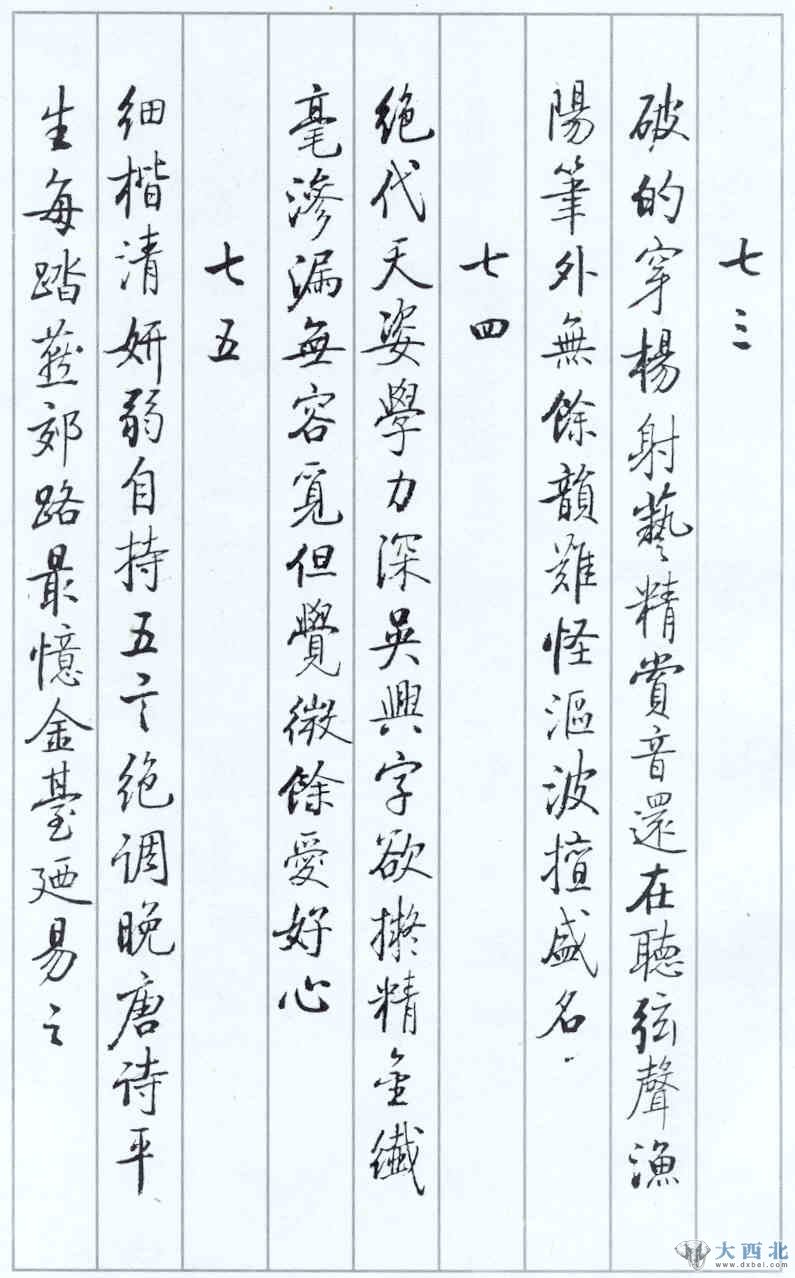 七三
破的穿楊射藝精賞音還在聽弦聲漁
陽筆外無餘韻難怪漚波擅盛名
七四
絕代天姿學力深吳興字欲擬精金纖
毫滲漏無容覓但覺微餘愛好心
七五
细楷清妍弱自持五言绝调晚唐诗平
生每踏燕郊路最憶金臺廼易之
大西北
www.dxbei.com